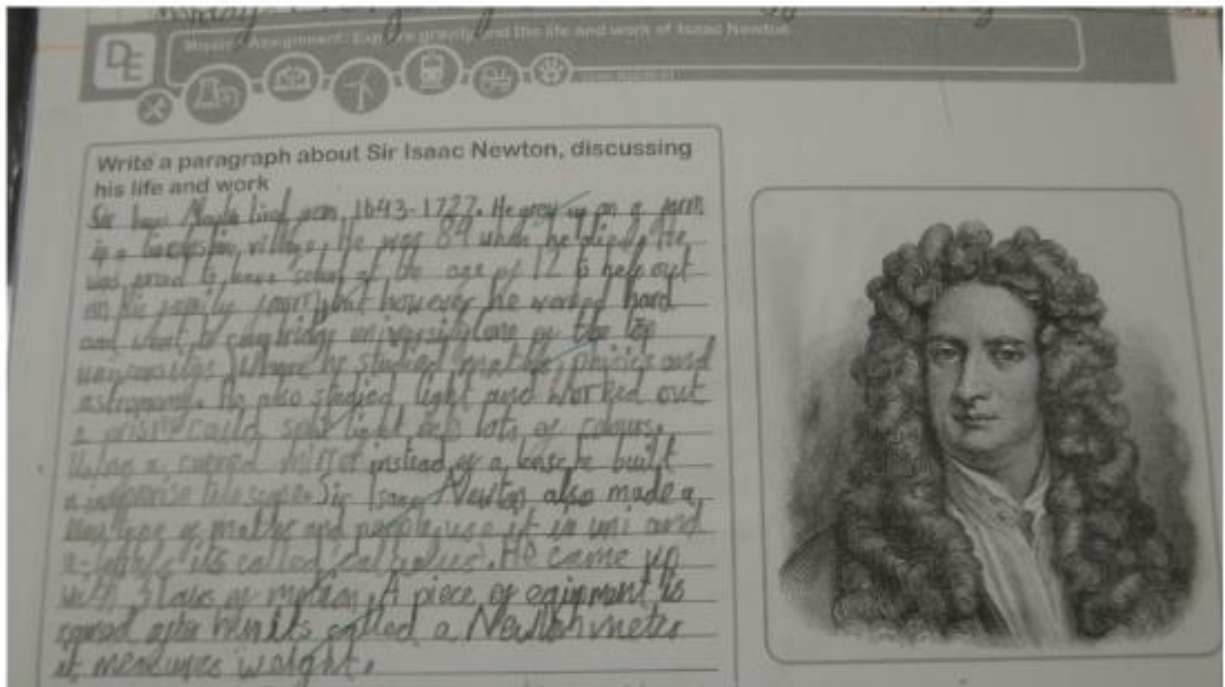 DE
Mission Assignment: Explore gravity and the life and work of Isaac Newton
Write a paragraph about Sir Isaac Newton, discussing
his life and work
Sir Isaac Newton lived from 1643-1727. He grew up on a farm
in a village. He was 84 when he died. He
was to leave school at the age of 12 to help out
on his family farm, but however he worked hard
and went to cambridge university one of the top
Where he studied maths, phisics and
astronomy. He also studied light and worked out
a prism could split light into lots of colours.
Using a curved mirror instead of a lense he built
a telescope. Sir Isaac Newton also made a
type of maths and people use it in uni and
a-levels its called . He came up
with 3 laws of motion. A piece of equipment is
named after him its called a Newton meter
it measures weight.